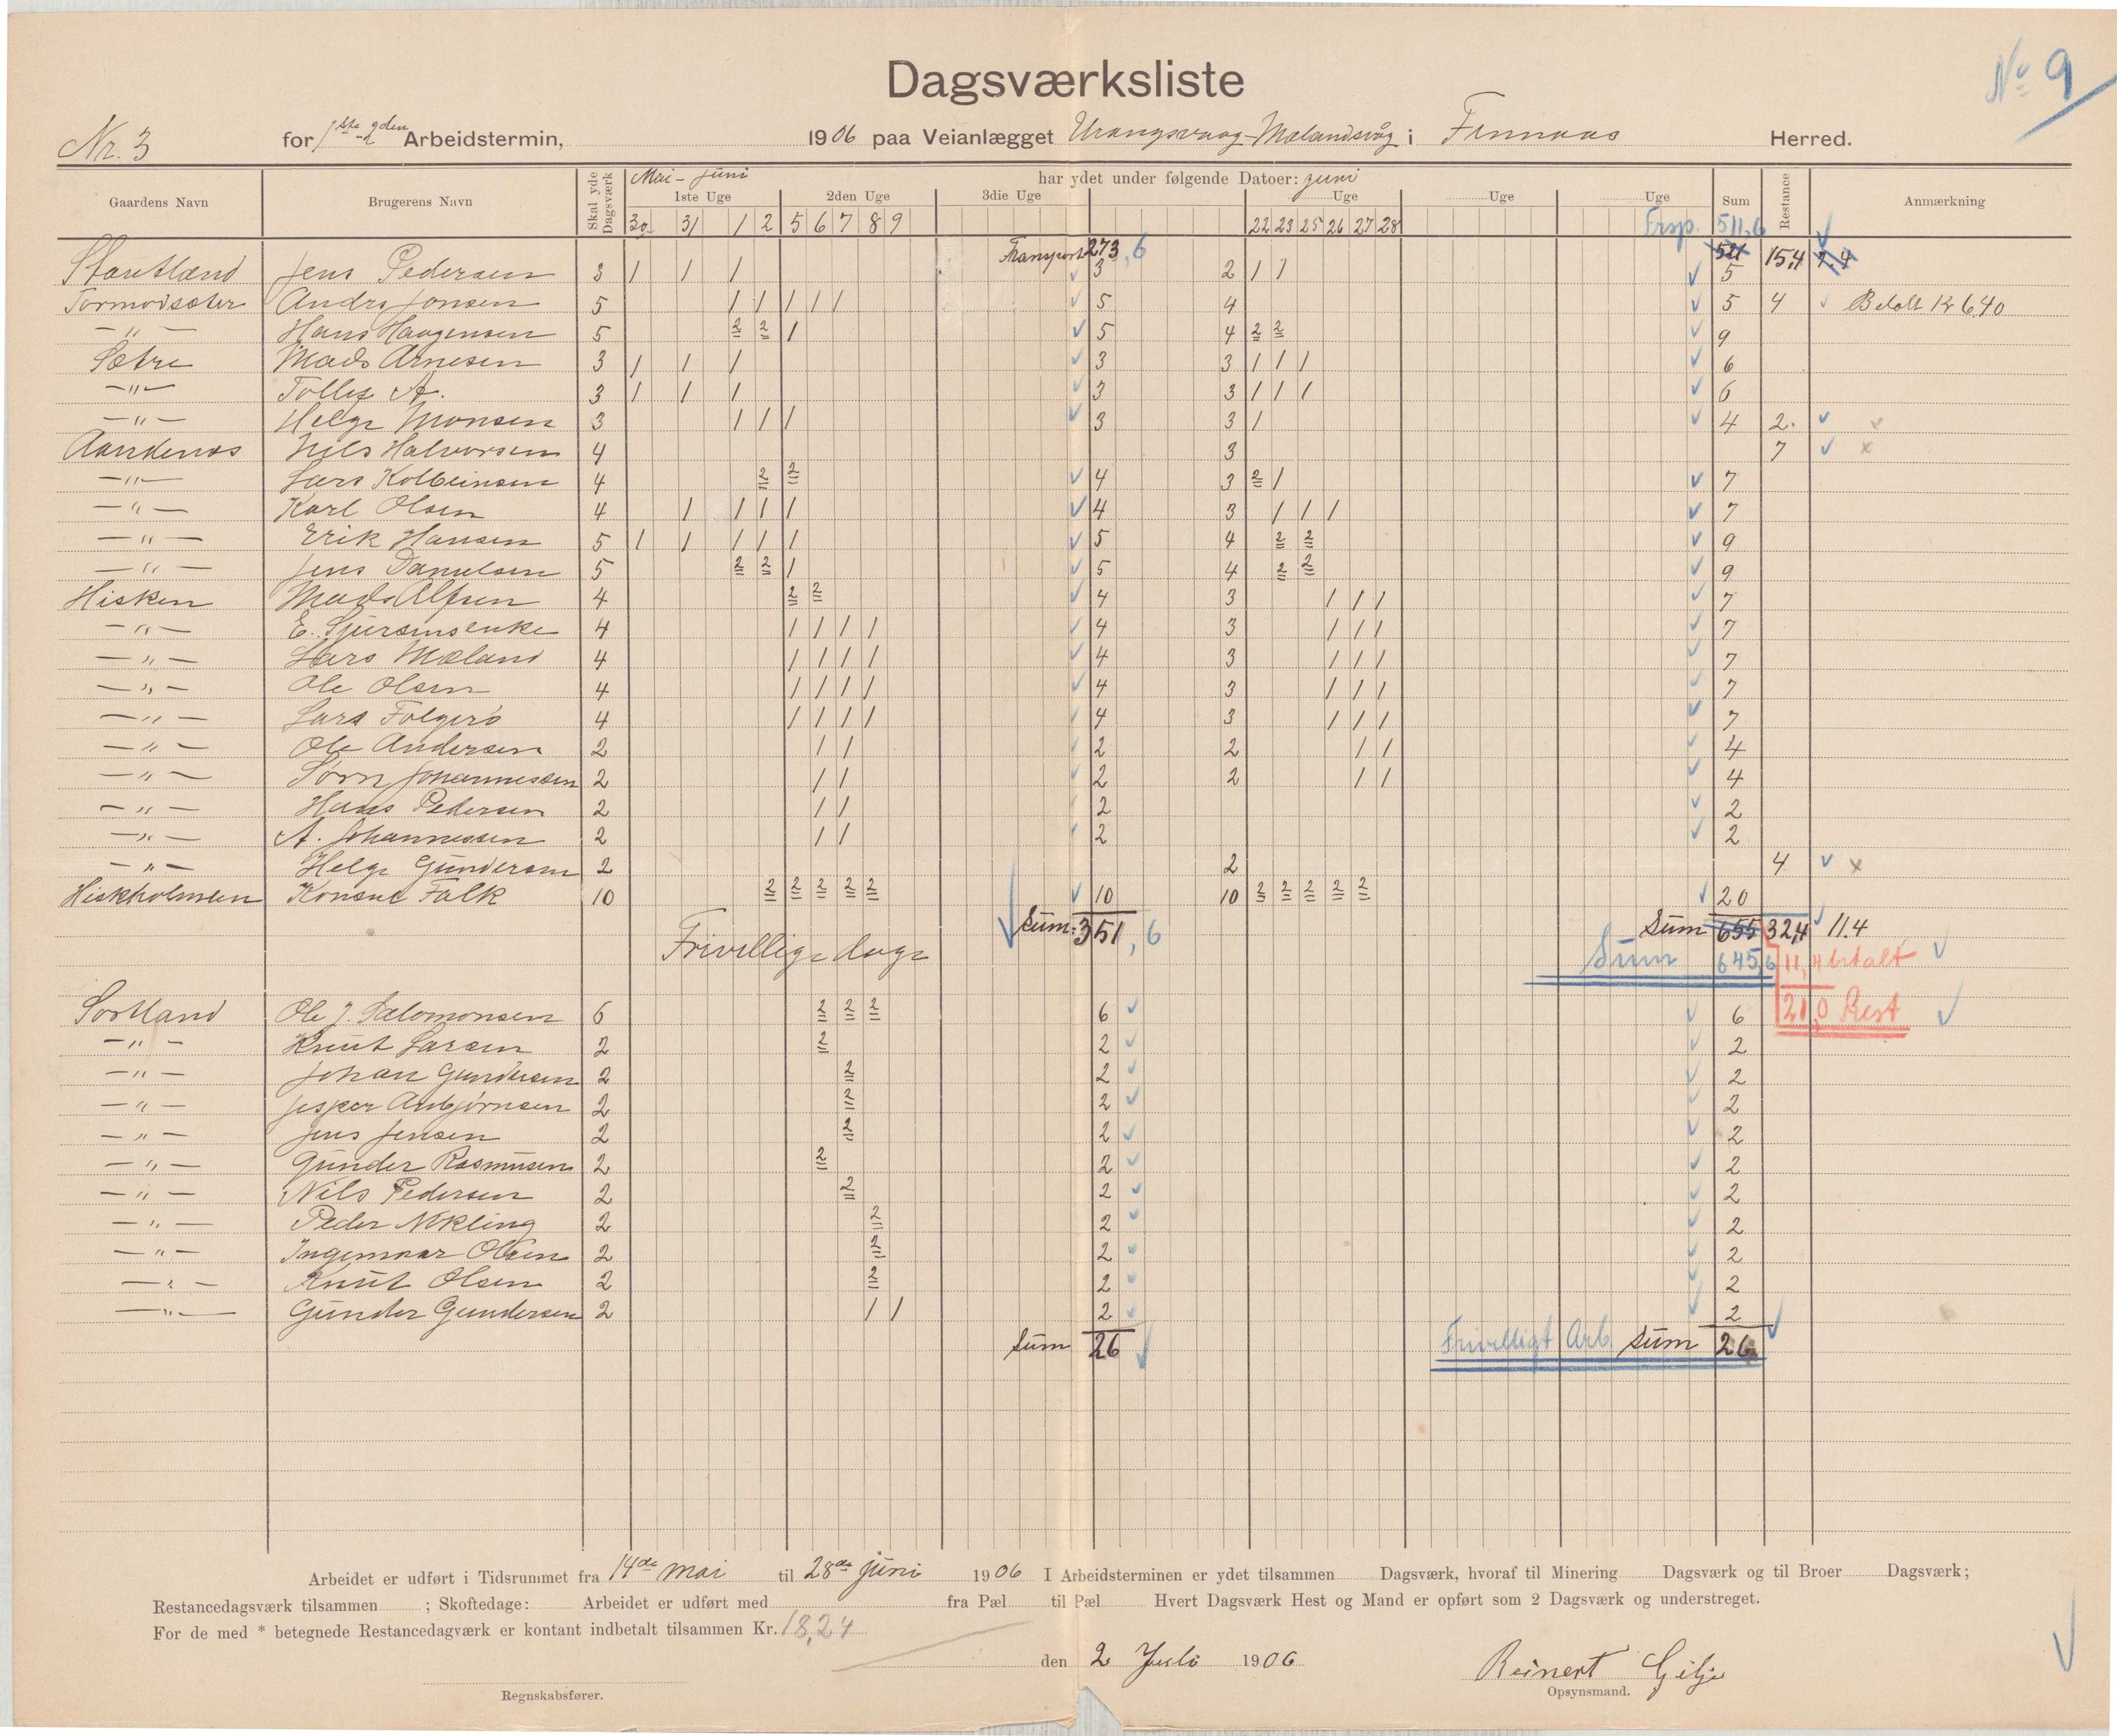 Dagsværksliste
No 9
Nr. 3 for 1ste-2den Arbeidstermin, 1906 paa Veianlægget Urangsvaag-Mælandsvåg i Finnaas Herred.
Gaardens Navn Brugerens Navn Skal yde Dagsværk Mai - Juni har ydet under følgende Datoer: Juni Sum Restance Anmærkning
1ste Uge 2den Uge 3die Uge Uge Uge Uge
30 31 1 2 5 6 7 8 9 22 23 25 26 27 28 Frsp. 511,6
Transport 273,6 521 15,4 7.4
Stautland Jens Pedersen 3 1 1 1 3 2 1 1 5
Tormodsæter Andrs Jonsen 5 1 1 1 1 1 5 4 5 4 Betalt Kr 6,40
-"- Hans Haagensen 5 2 2 1 5 4 2 2 9
Sætre Mads Arnesen 3 1 1 1 3 3 1 1 1 6
-"- Tollef A. 3 1 1 1 3 3 1 1 1 6
-"- Helge Monsen 3 1 1 1 3 3 1 4 2.
Aandenes Nils Halvorsen 4 3 7 x
-"- Lars Kolbeinsen 4 2 2 4 3 2 1 7
-"- Karl Olsen 4 1 1 1 1 4 3 1 1 1 7
-"- Erik Hansen 5 1 1 1 1 1 5 4 2 2 9
-"- Jens Danielsen 5 2 2 1 5 4 2 2 9
Hisken Mads Alfsen 4 2 2 4 3 1 1 1 7
-"- E. Sjursensenke 4 1 1 1 1 4 3 1 1 1 7
-"- Lars Mæland 4 1 1 1 1 4 3 1 1 1 7
-"- Ole Olsen 4 1 1 1 1 4 3 1 1 1 7
-"- Lars Folgerø 4 1 1 1 1 4 3 1 1 1 7
-"- Ole Andersen 2 1 1 2 2 1 1 4
-"- Sørn Johannessen 2 1 1 2 2 1 1 4
-"- Hans Pedersen 2 1 1 2 2
-"- A. Johannessen 2 1 1 2 2
-"- Helge Gundersen 2 2 4 x
Hiskholmen Konsul Falk 10 2 2 2 2 2 10 10 2 2 2 2 2 20
Sum: 351,6 Sum 655 32,4 11.4
Frivillige dage Sum 645,6 11,4 betalt
21,0 Rest
Sortland Ole J. Salomonsen 6 2 2 2 6 6
-"- Knut Larsen 2 2 2 2
-"- Johan Gundersen 2 2 2 2
-"- Jesper Asbjørnsen 2 2 2 2
-"- Jens Jensen 2 2 2 2
-"- Gunder Rasmusen 2 2 2 2
-"- Nils Pedersen 2 2 2 2
-"- Peder Nekling 2 2 2 2
-"- Ingemaar Olsen 2 2 2 2
-"- Knut Olsen 2 2 2 2
-"- Gunder Gundersen 2 1 1 2 2
Sum 26 Frivilligt Arb. Sum 26
Arbeidet er udført i Tidsrummet fra 14de Mai til 28de Juni 1906 I Arbeidsterminen er ydet tilsammen Dagsværk, hvoraf til Minering Dagsværk og til Broer Dagsværk;
Restancedagsværk tilsammen ; Skoftedage: Arbeidet er udført med fra Pæl til Pæl Hvert Dagsværk Hest og Mand er opført som 2 Dagsværk og understreget.
For de med * betegnede Restancedagværk er kontant indbetalt tilsammen Kr. 18,24
den 2 Juli 1906 Reinert Gilje
Regnskabsfører. Opsynsmand.